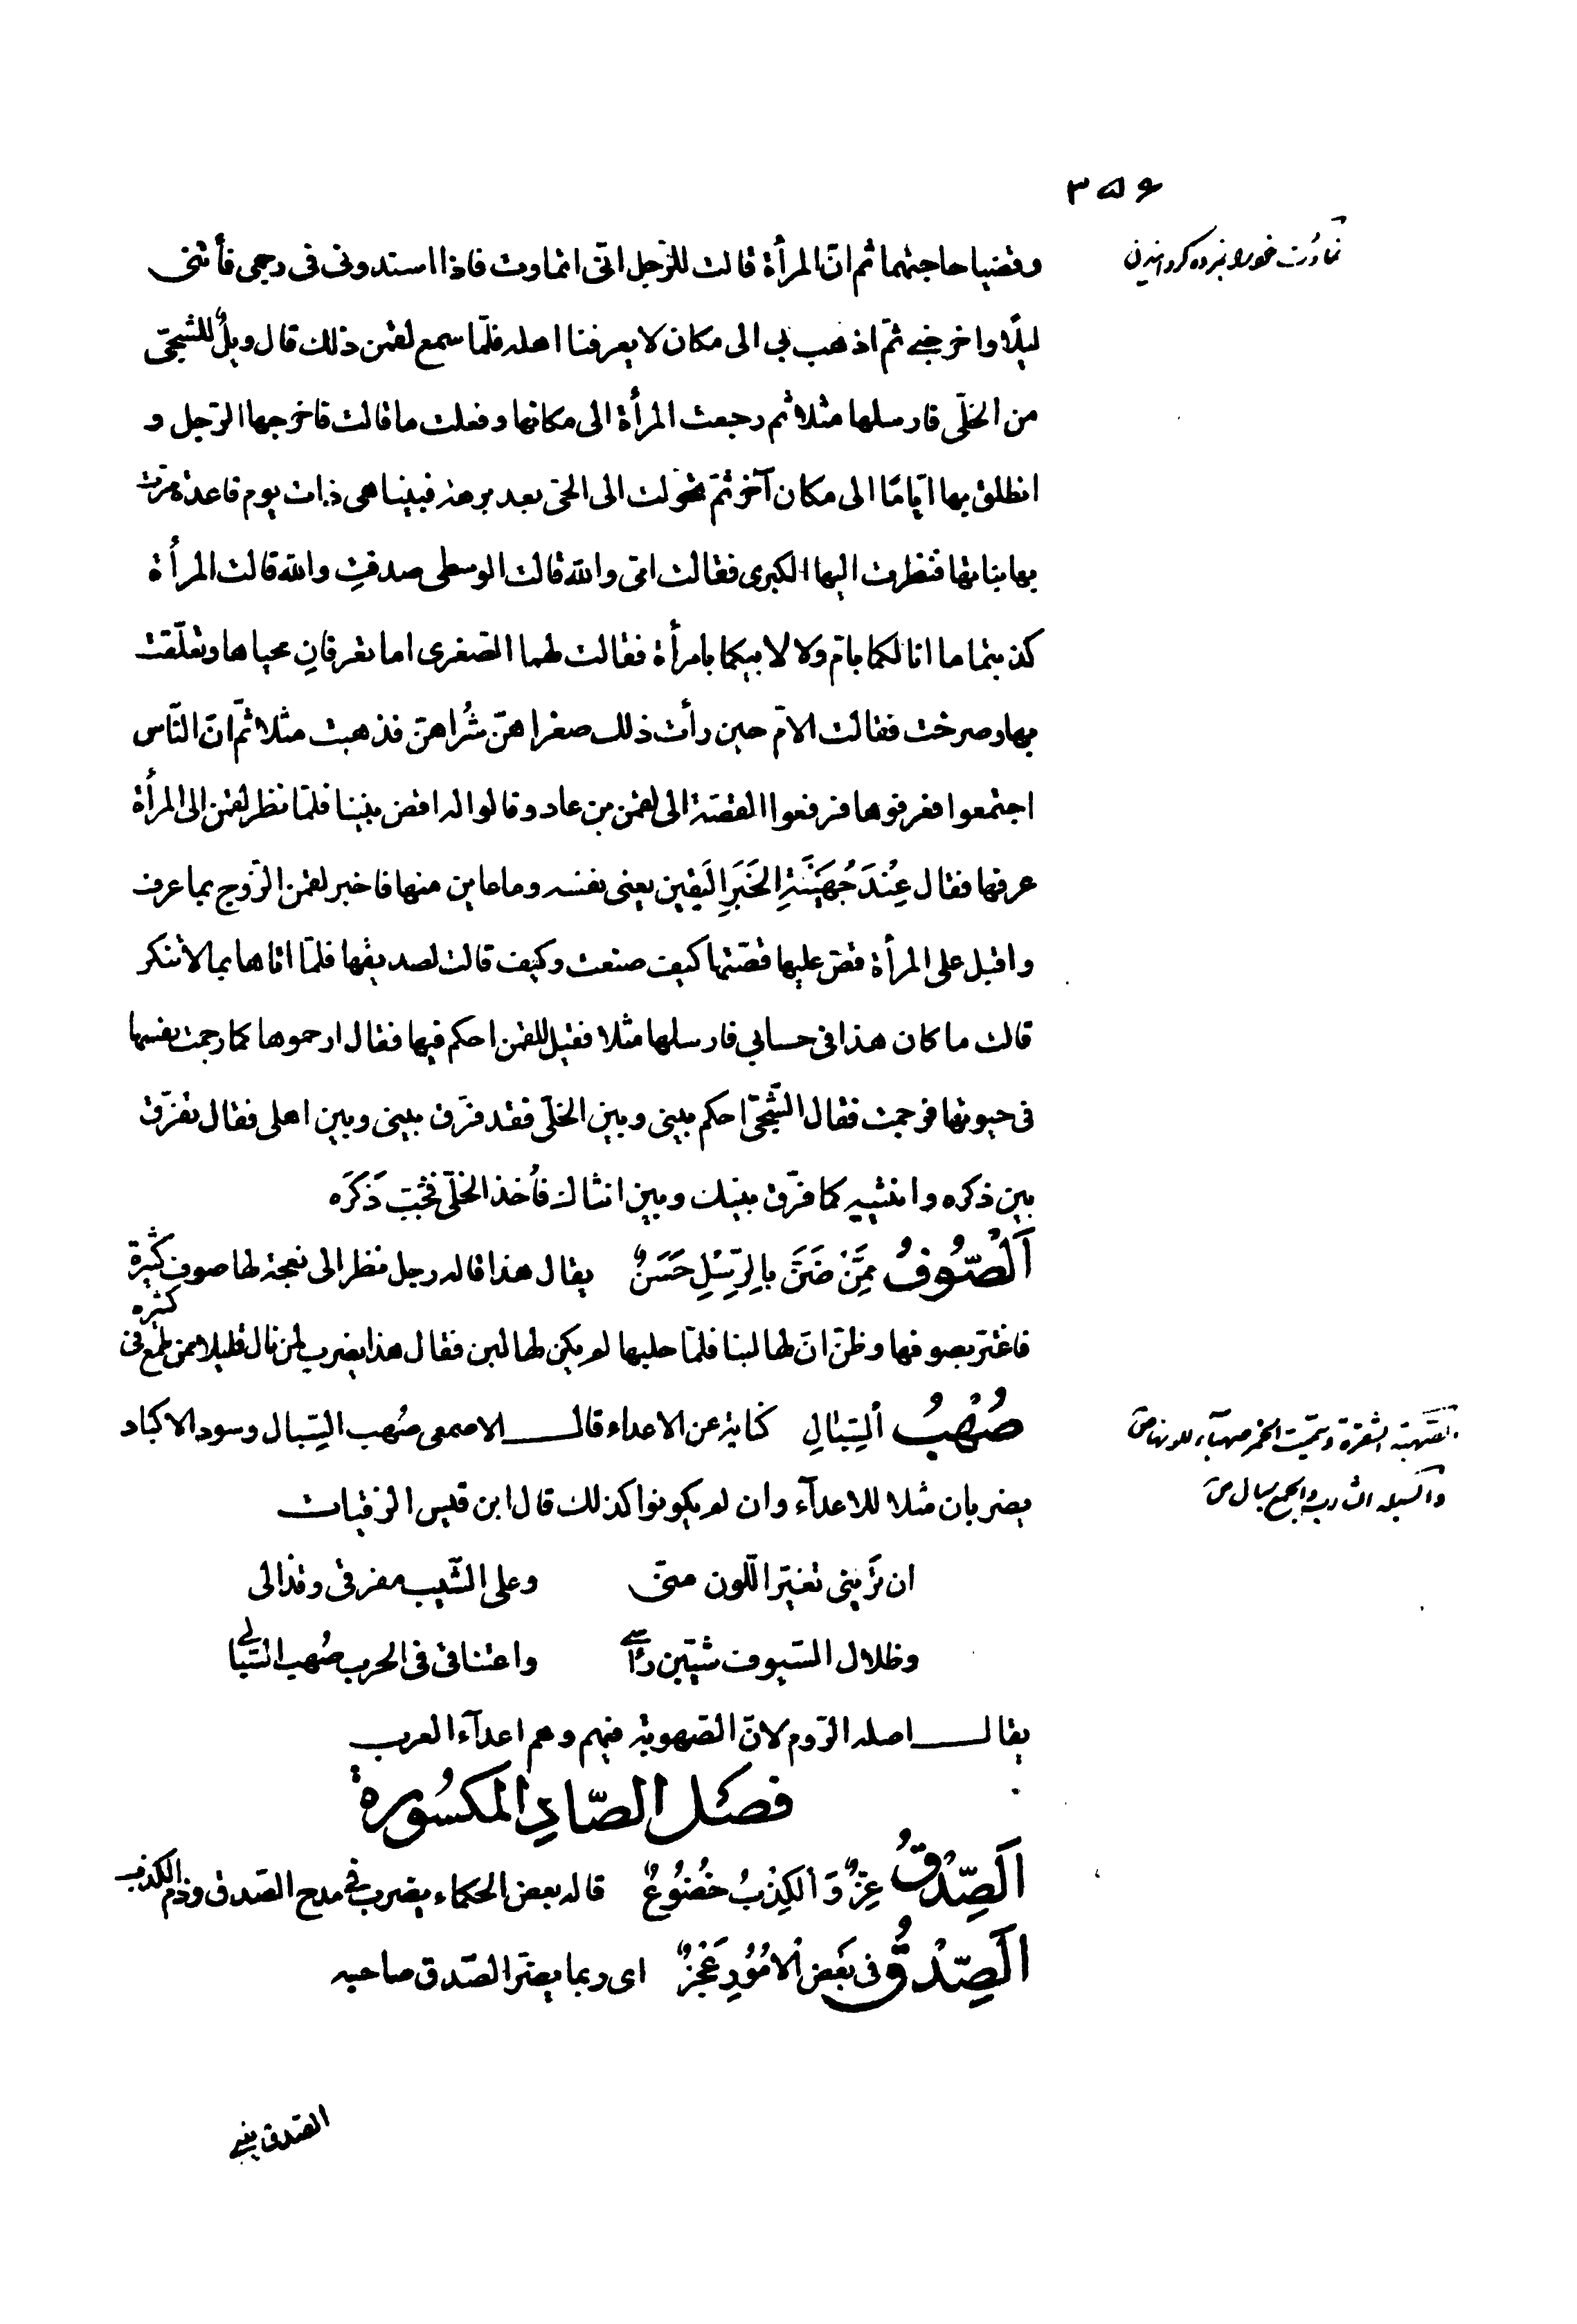 ۳۵۶
تماوت خود را بمرده گردانیدن
وقضيا حاجتهما ثم انّ المرأة قالت للرّجل انّى اتماوت فاذا اسندونى فى رجمى فأتنى
ليلًا واخرجنے ثمّ اذهب بى الى مكان لا يعرفنا اهله فلمّا سمع لقمن ذلك قال ويلٌ للشجّى
من الخلّى فارسلها مثلا ثم رجعت المرأة الى مكانها وفعلت ما قالت فاخرجها الرّجل و
انطلق بها ايّامًا الى مكان آخر ثمّ تحوّلت الى الحىّ بعد برهة فبينا هى ذات يوم قاعدة مرّت
بها بناتها فنظرت اليها الكبرى فقالت امّى والله قالت الوسطى صدقتِ والله قالت المرأة
كذبتما ما انا لكما بامّ ولا لابيكما بامرأة فقالت لهما الصّغرى اما تعرفانِ محياها وتعلّقت
بها وصرخت فقالت الامّ حين رأت ذلك صغراهنّ شُراهنّ فذهبت مثلا ثمّ انّ النّاس
اجتمعوا فعرفوها فرفعوا القصّة الى لقمن بن عاد وقالوا له اقض بيننا فلمّا نظر لقمن الى المرأة
عرفها فقال عِنْدَ جُهَيْنَةِ الخَبَرِ اليَقين يعنى نفسه وما عاين منها فاخبر لقمن الزّوج بما عرف
واقبل على المرأة فقصّ عليها قصّتها كيف صنعت وكيف قالت لصديقها فلمّا اتاها بما لا تنكر
قالت ما كان هذا فى حسابى فارسلها مثلا فقيل للقمن احكم فيها فقال ارجموها كما رجمت نفسها
فى حيوتها فرجمت فقال الشّجىّ احكم بينى وبين الخلّى فقد فرّق بينى وبين اهلى فقال تفرّق
بين ذكره وانثييه كما فرّق بينك وبين انثاك فأُخذ الخلّى فجُبّ ذَكَرَه
اَلصُّوفُ مِمَّنْ ضَنَّ بِالرِّسْلِ حَسَنٌ يقال هذا قاله رجل نظر الى نعجة لها صوف كثيرة
فاغترّ بصوفها وظنّ انّ لها لبنا فلمّا حلبها لم يكن لها لبن فقال هذا يضرب لمن نال قليلا ممن طمع فى كثيره
صُهْبُ ألسِّبٰالِ كناية عن الاعداء قال الاصمعى صُهب السّبال وسود الاكباد
الصّهبة الشقرة وسمّيت الخمر صهباء للونها ص
والسبلة الشارب والجمع سبال ص
يضربان مثلا للاعدآء وان لم يكونوا كذلك قال ابن قيس الرقيات
ان تَرَينى تغيّر اللّون منّى وعلى الشّيب مفرقى وقذالى
وظلال السّيوف شيّبن رأسے واعتناقى فى الحرب صُهب السّبالے
يقال اصله الرّوم لانّ الصّهوبة فيهم وهم اعدآء العرب
فصل الصّادِ المكسُورة
اَلصِّدْقُ عِزٌّ وَالكِذْبُ خُضُوعٌ قاله بعض الحكماء يضرب فى مدح الصّدق وذم الكذب
اَلصِّدْقُ فى بَعْضِ الْامُوُرِ عَجْزٌ اى ربما يضرّ الصّدق صاحبه
الصّدق ينبے